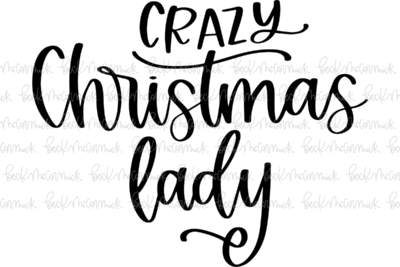 CRAZY
Christmas
lady